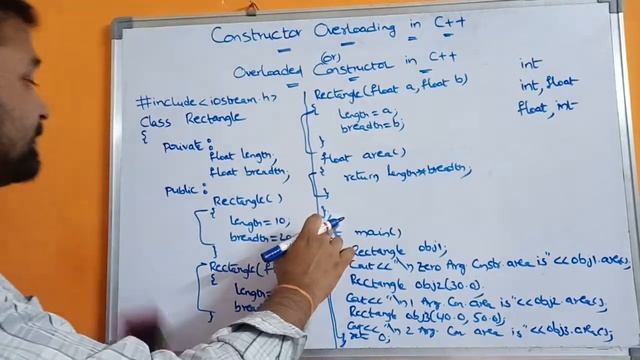 Constructor Overloading in C++
(or)
Overloaded Constructor in C++
#include<iostream.h>
Class Rectangle
{
private:
float length,
float breadth,
public:
Rectangle()
{
length=10,
breadth=20
}
Rectangle(f
{
length=
}
Rectangle(float a, float b)
{
length=a;
breadth=b;
}
float area()
{
return length*breadth,
}
}
main()
Rectangle obj1;
Cout<<"\n Zero Arg Cnstr. area is"<<obj1.area
Rectangle obj2(30.0).
Cout<<"\n 1 Arg. Cn. area is"<<obj2.area();
Rectangle obj3(40.0, 50.0);
Cout<<"\n 2 Arg. Cn area is"<<obj3.area();
0;
}
int
int, float
float, int